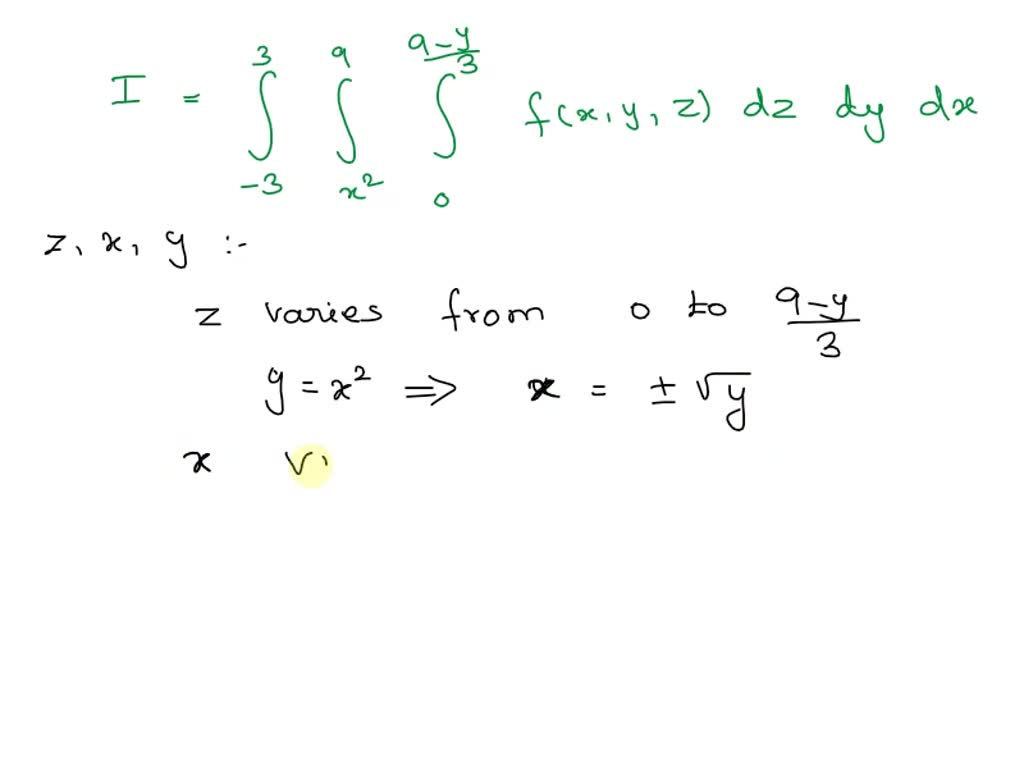 I = ∫_{-3}^{3} ∫_{x²}^{9} ∫_{0}^{(9-y)/3} f(x, y, z) dz dy dx
z, x, y :-
z varies from 0 to (9-y)/3
y = x² ⟹ x = ± √y
x